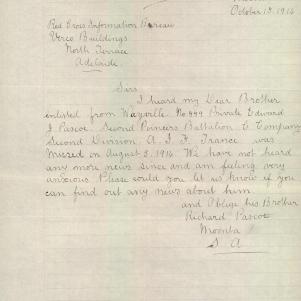 October 1st 1916
Red Cross Information Bureau
Verco Buildings
North Terrace
Adelaide
Sirs
I heard my Dear Brother
enlisted from Wayville. No 999 Private Edward
J Pascoe. Second Pioneers Battalion C Company
Second Division A. I. F. France was
missed on August 5. 1916. We have not heard
any more news since and am feeling very
anxious Please would you let us know if you
can find out any news about him
and Oblige his Brother
Richard Pascoe
Moonta
S A